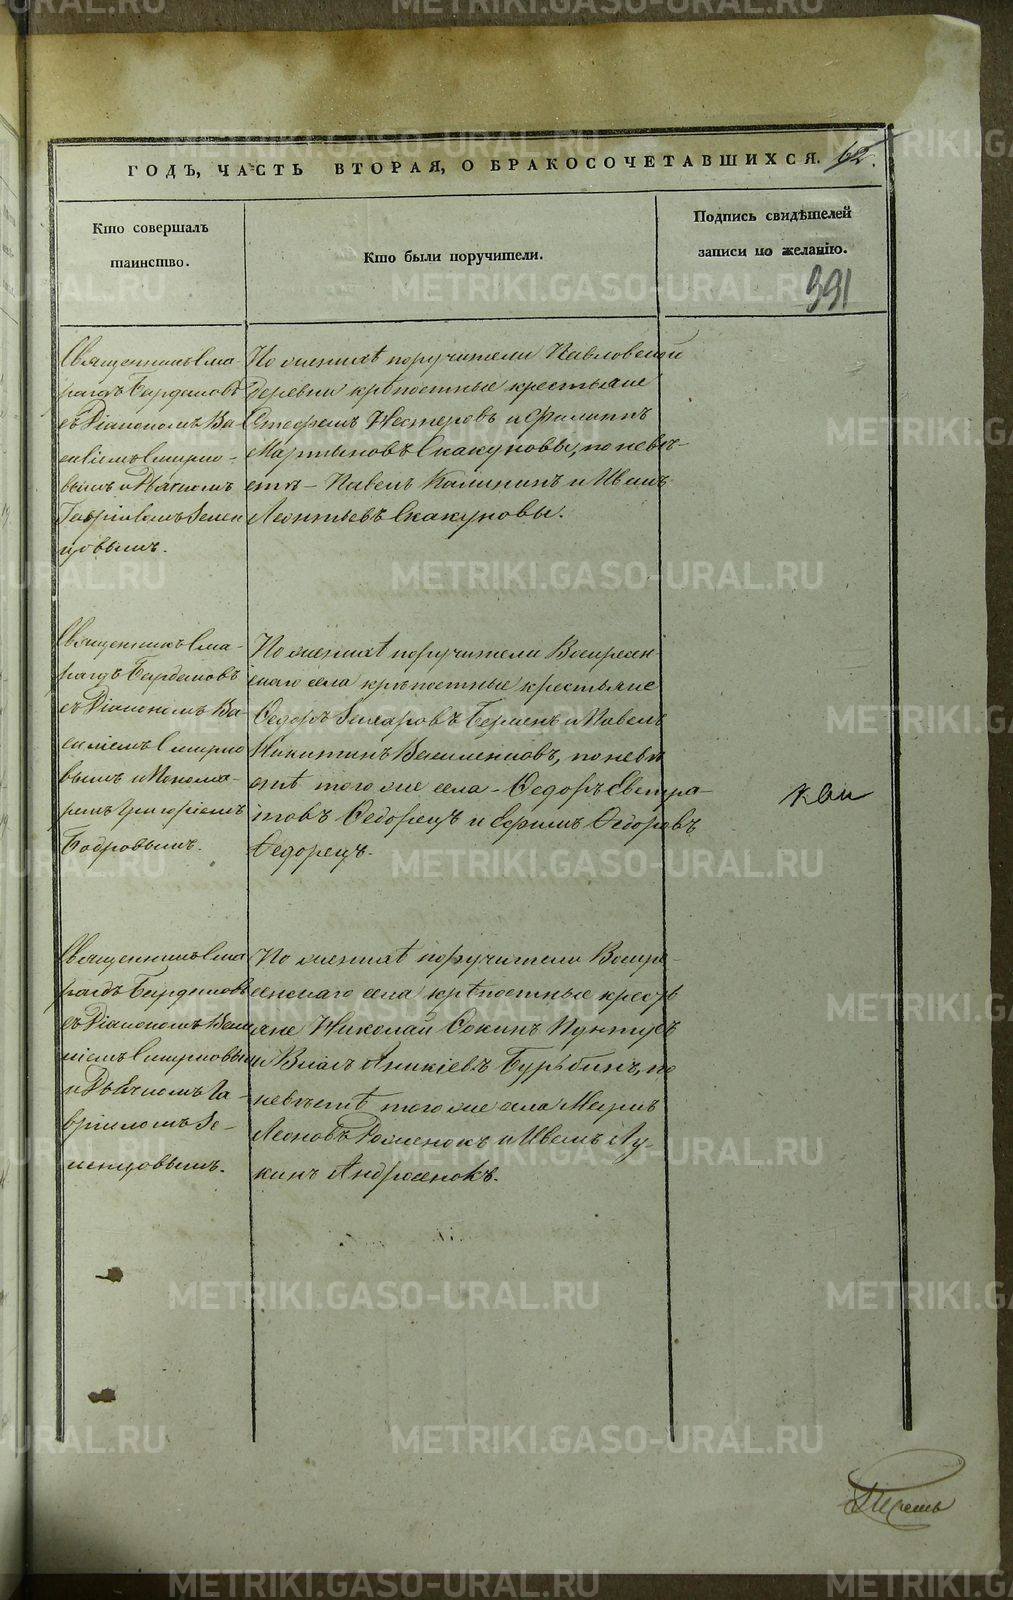 ГОДЪ, ЧАСТЬ ВТОРАЯ, О БРАКОСОЧЕТАВШИХСЯ. 62.
Кто совершалъ
таинство.
Кто были поручители.
Подпись свидѣтелей
записи по желанію.
391
Священникъ Сма
рагдъ Бардаковъ
съ Діакономъ Ва
силіемъ Смирно-
вымъ и Дьячкомъ
Гавріиломъ Земен
цовымъ.
По женихѣ поручители Павловской
деревни крѣпостные крестьяне
Стефанъ Нестеровъ и Филиппъ
Мартыновъ Скакуновы, по невѣ-
стѣ - Павелъ Калининъ и Иванъ
Леонтьевъ Скакуновы.
Священникъ Сма-
рагдъ Бардаковъ
съ Діакономъ Ва-
силіемъ Смирно
вымъ и Понома-
ремъ Григоріемъ
Бобровымъ.
По женихѣ поручители Воскресен-
скаго села крѣпостные крестьяне
Ѳедоръ и Павелъ
Никитинъ по невѣ
стѣ того же села - Ѳедоръ Евстра-
товъ Ѳедорецъ и Ефимъ Ѳедоровъ
Ѳедорецъ.
Священникъ Сма
рагдъ Бардаковъ
съ Діакономъ Васи
ліемъ Смирновымъ
и Дьячкомъ Га-
вріиломъ Зе-
менцовымъ.
По женихѣ поручители Воскре-
сенскаго села крѣпостные кресть
яне Николай
и Власъ Аникіевъ по
невѣстѣ того же села
Леоновъ и Иванъ Лу-
кинъ Андросенокъ.
METRIKI.GASO-URAL.RU